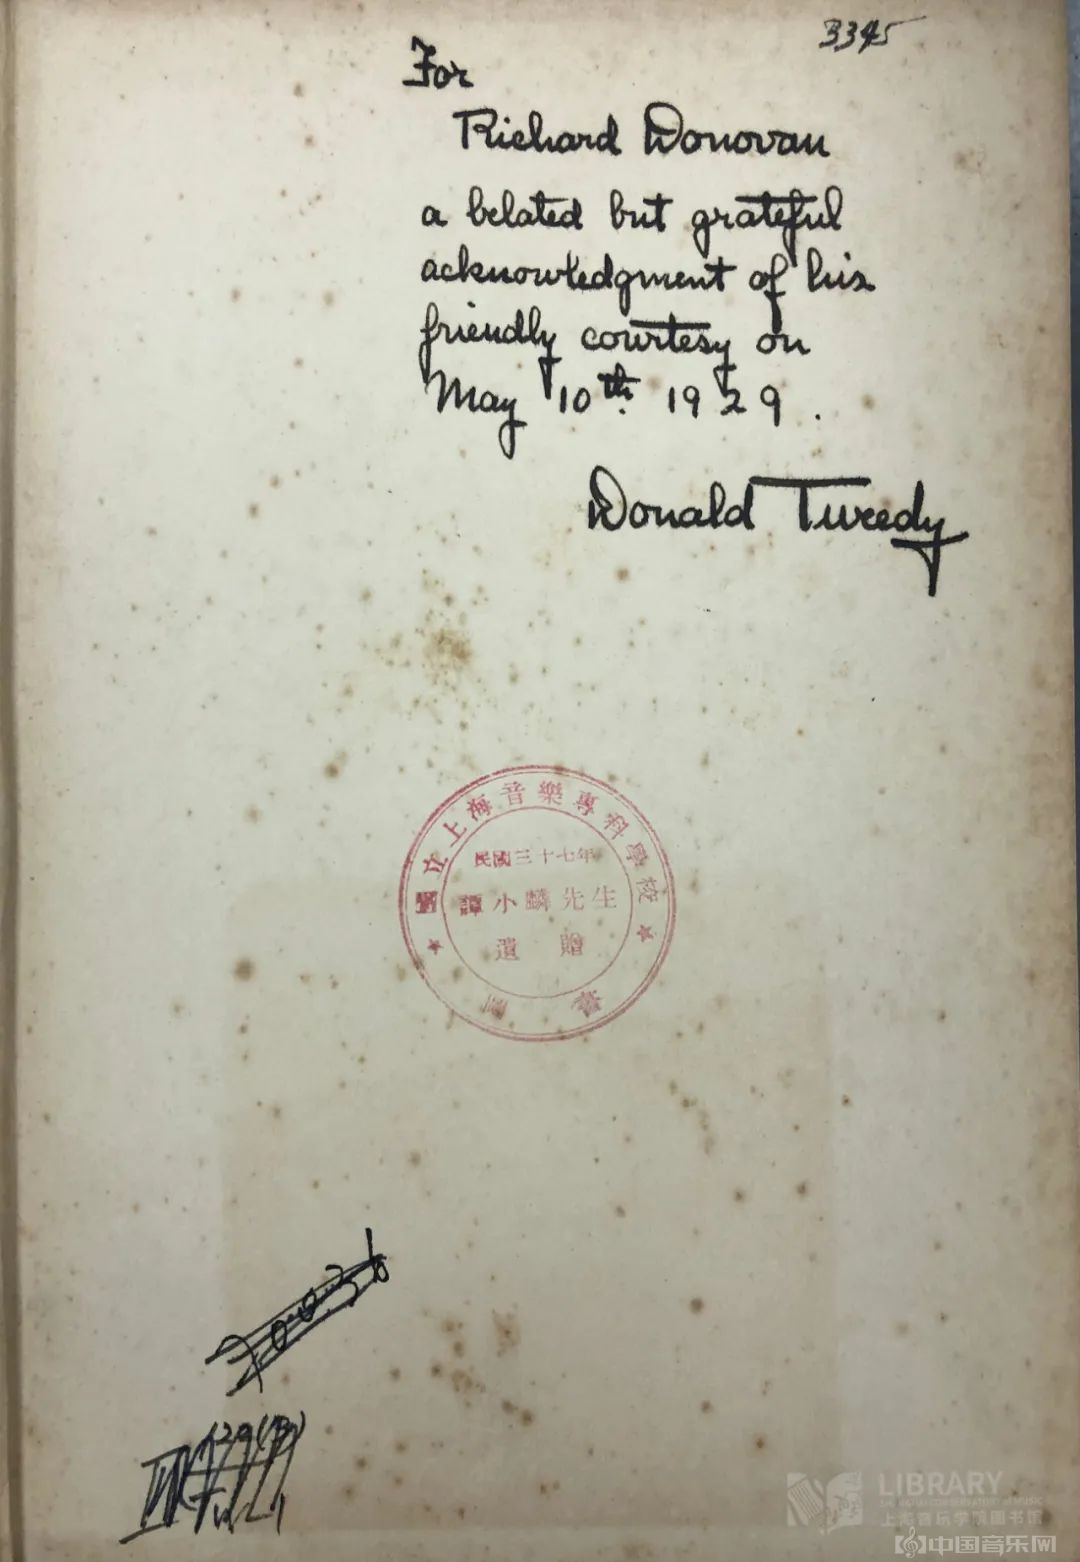 3345
For
Richard Donovan
a belated but grateful
acknowledgment of his
friendly courtesy on
May 10th. 1929.
Donald Tweedy
國立上海音樂專科學校
民國三十七年
譚小麟先生
遺贈
LIBRARY
上海音乐学院图书馆
中国音乐网